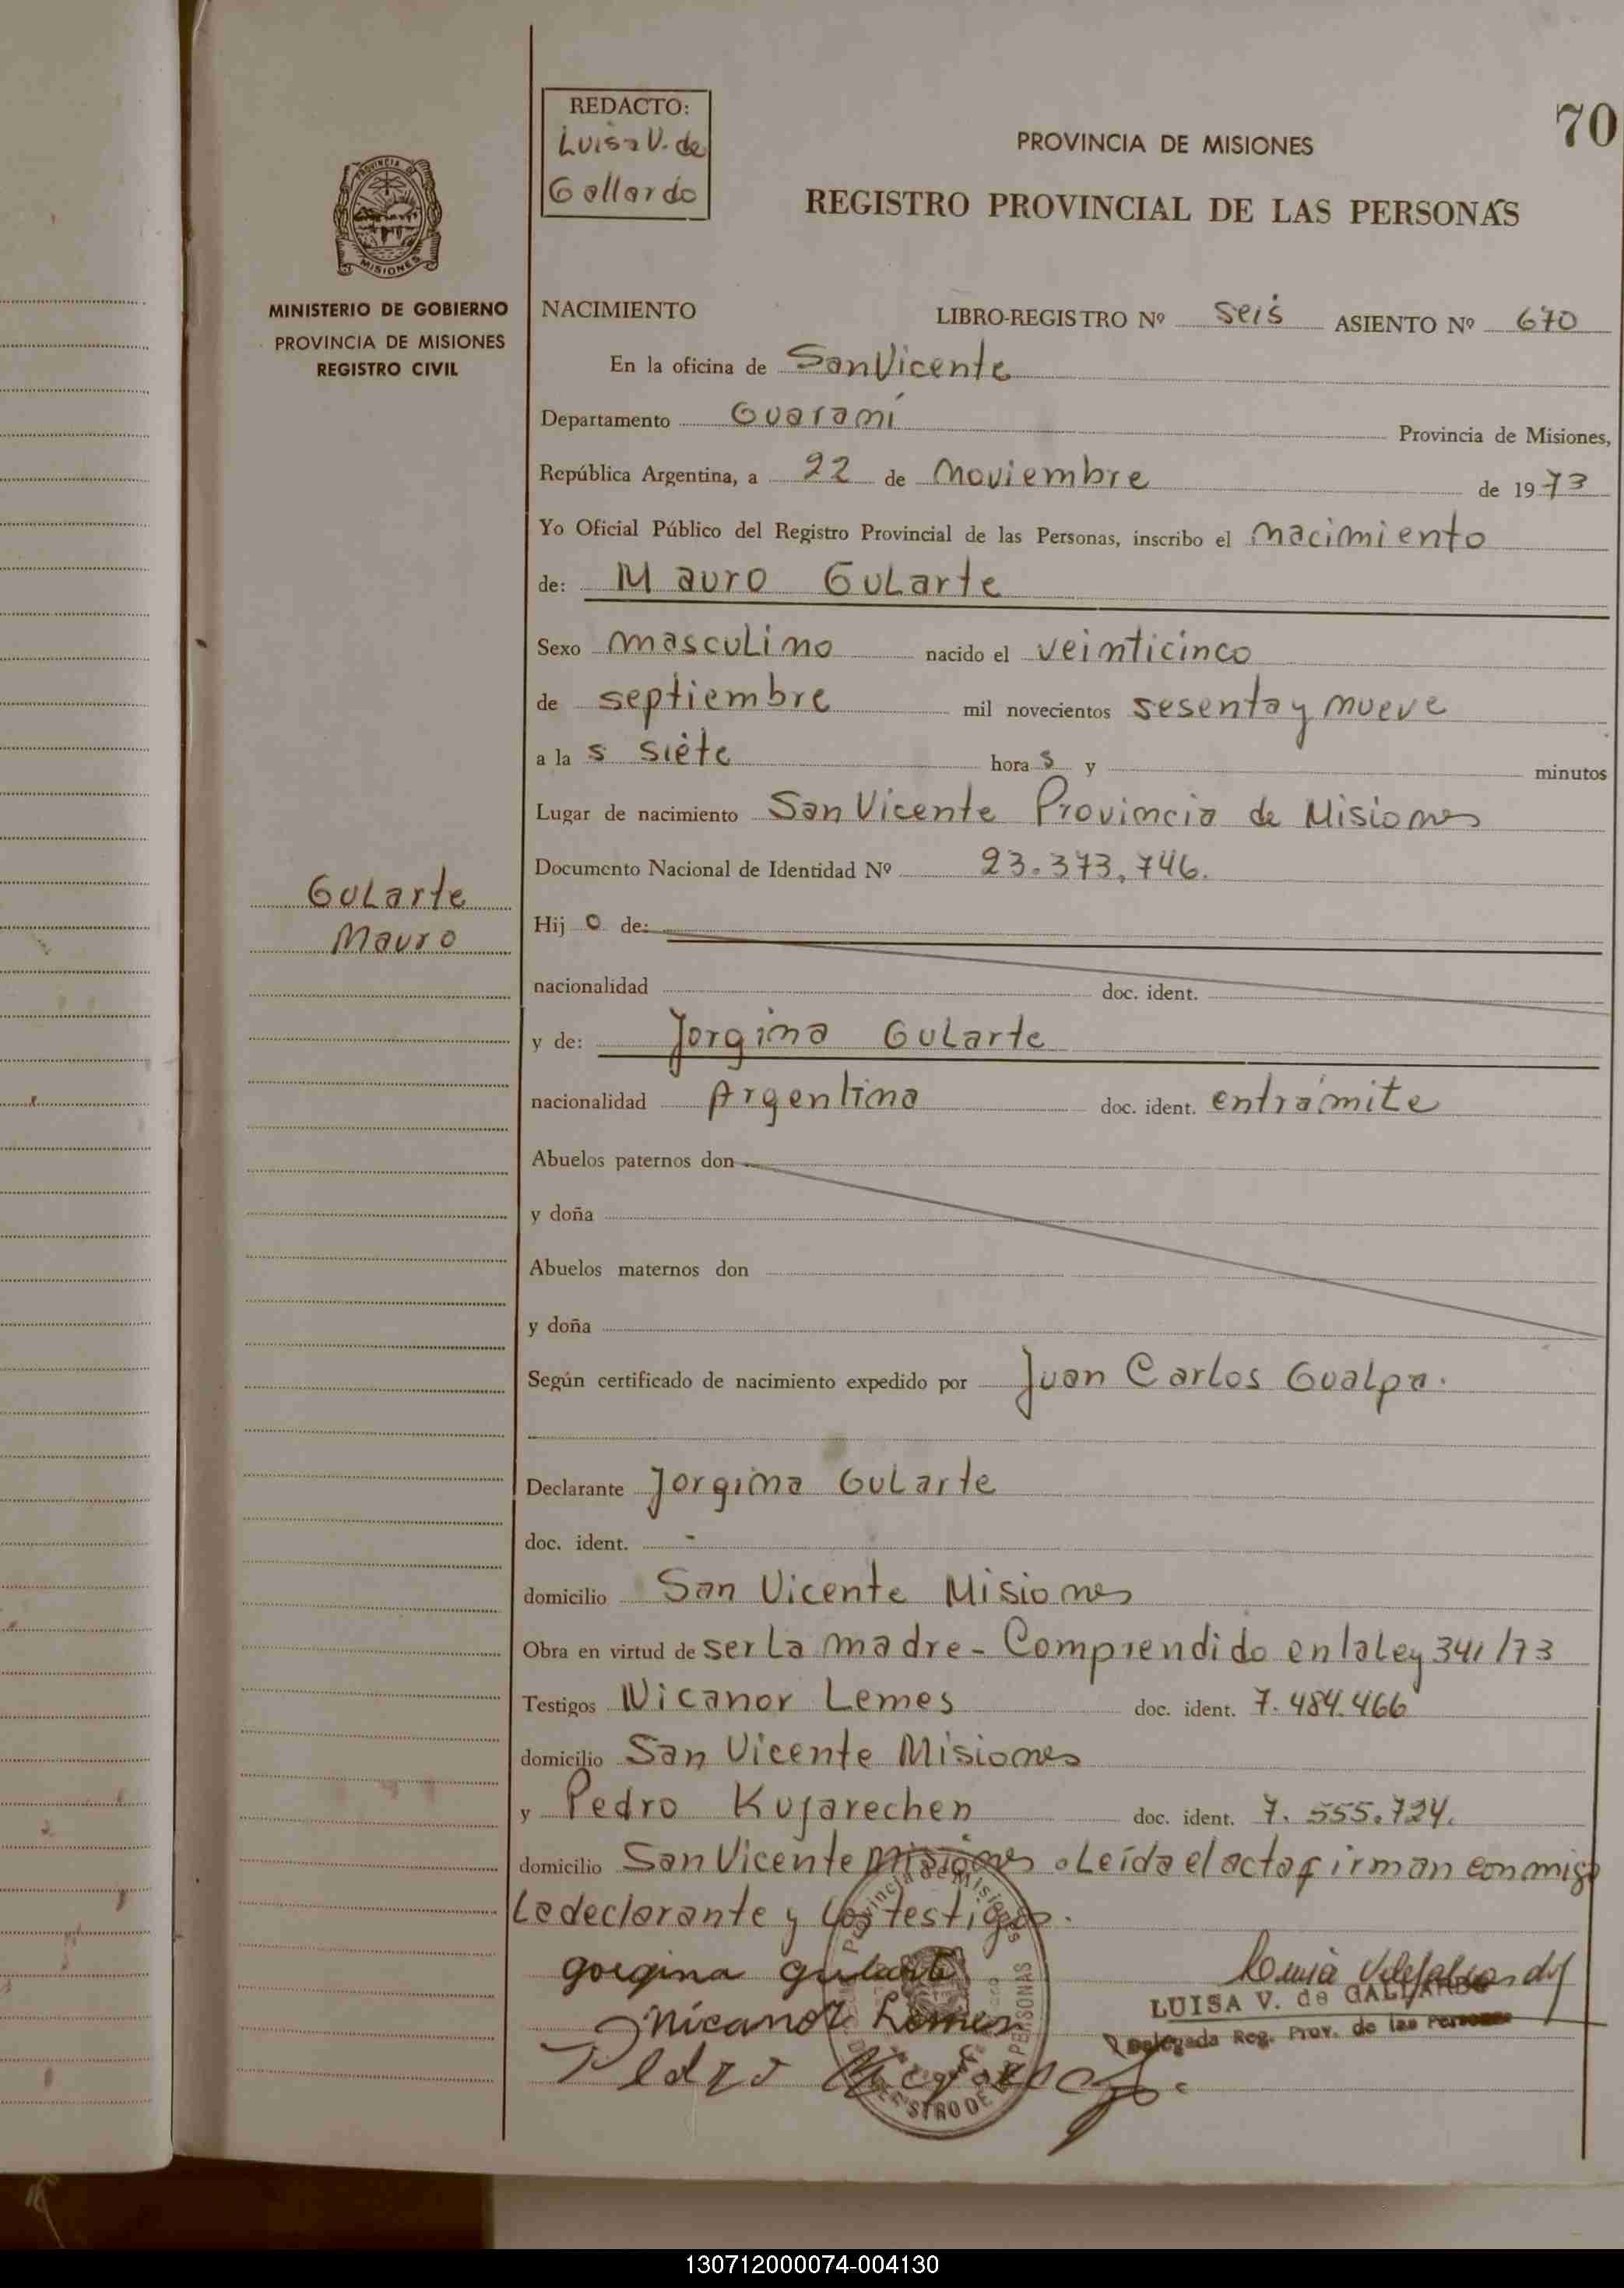 70
REDACTO:
Luisa V. de
Gallardo
PROVINCIA DE MISIONES
REGISTRO PROVINCIAL DE LAS PERSONAS
PROVINCIA DE
MISIONES
MINISTERIO DE GOBIERNO
PROVINCIA DE MISIONES
REGISTRO CIVIL
NACIMIENTO LIBRO-REGISTRO Nº seis ASIENTO Nº 670
En la oficina de San Vicente
Departamento Guaraní Provincia de Misiones,
República Argentina, a 22 de Noviembre de 1973
Yo Oficial Público del Registro Provincial de las Personas, inscribo el nacimiento
de: Mauro Gularte
Sexo masculino nacido el veinticinco
de septiembre mil novecientos sesenta y nueve
a la s siete hora s y minutos
Lugar de nacimiento San Vicente Provincia de Misiones
Documento Nacional de Identidad Nº 23.373,746.
Gularte
Mauro
Hij o de:
nacionalidad doc. ident.
y de: Jorgina Gularte
nacionalidad Argentina doc. ident. entrámite
Abuelos paternos don
y doña
Abuelos maternos don
y doña
Según certificado de nacimiento expedido por Juan Carlos Gualpa.
Declarante Jorgina Gularte
doc. ident. -
domicilio San Vicente Misiones
Obra en virtud de ser la madre - Comprendido en la Ley 341/73
Testigos Nicanor Lemes doc. ident. 7.484.466
domicilio San Vicente Misiones
y Pedro Kujarechen doc. ident. 7.555.724.
domicilio San Vicente Misiones. Leída el acta firman conmigo
La declarante y los testigos.
gorgina gularte
Nicanor Lemes
Pedro
LUISA V. de GALLARDO
Delegada Reg. Prov. de las Personas
Provincia de Misiones
REGISTRO DE PERSONAS
130712000074-004130